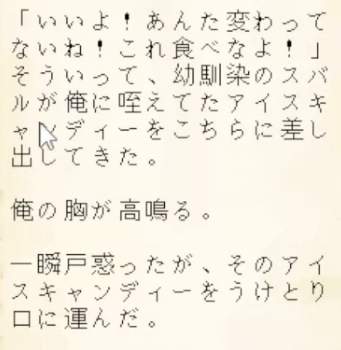 「いいよ！あんた変わって
ないね！これ食べなよ！」
そういって、幼馴染のスバ
ルが俺に咥えてたアイスキ
ャンディーをこちらに差し
出してきた。
俺の胸が高鳴る。
一瞬戸惑ったが、そのアイ
スキャンディーをうけとり
口に運んだ。